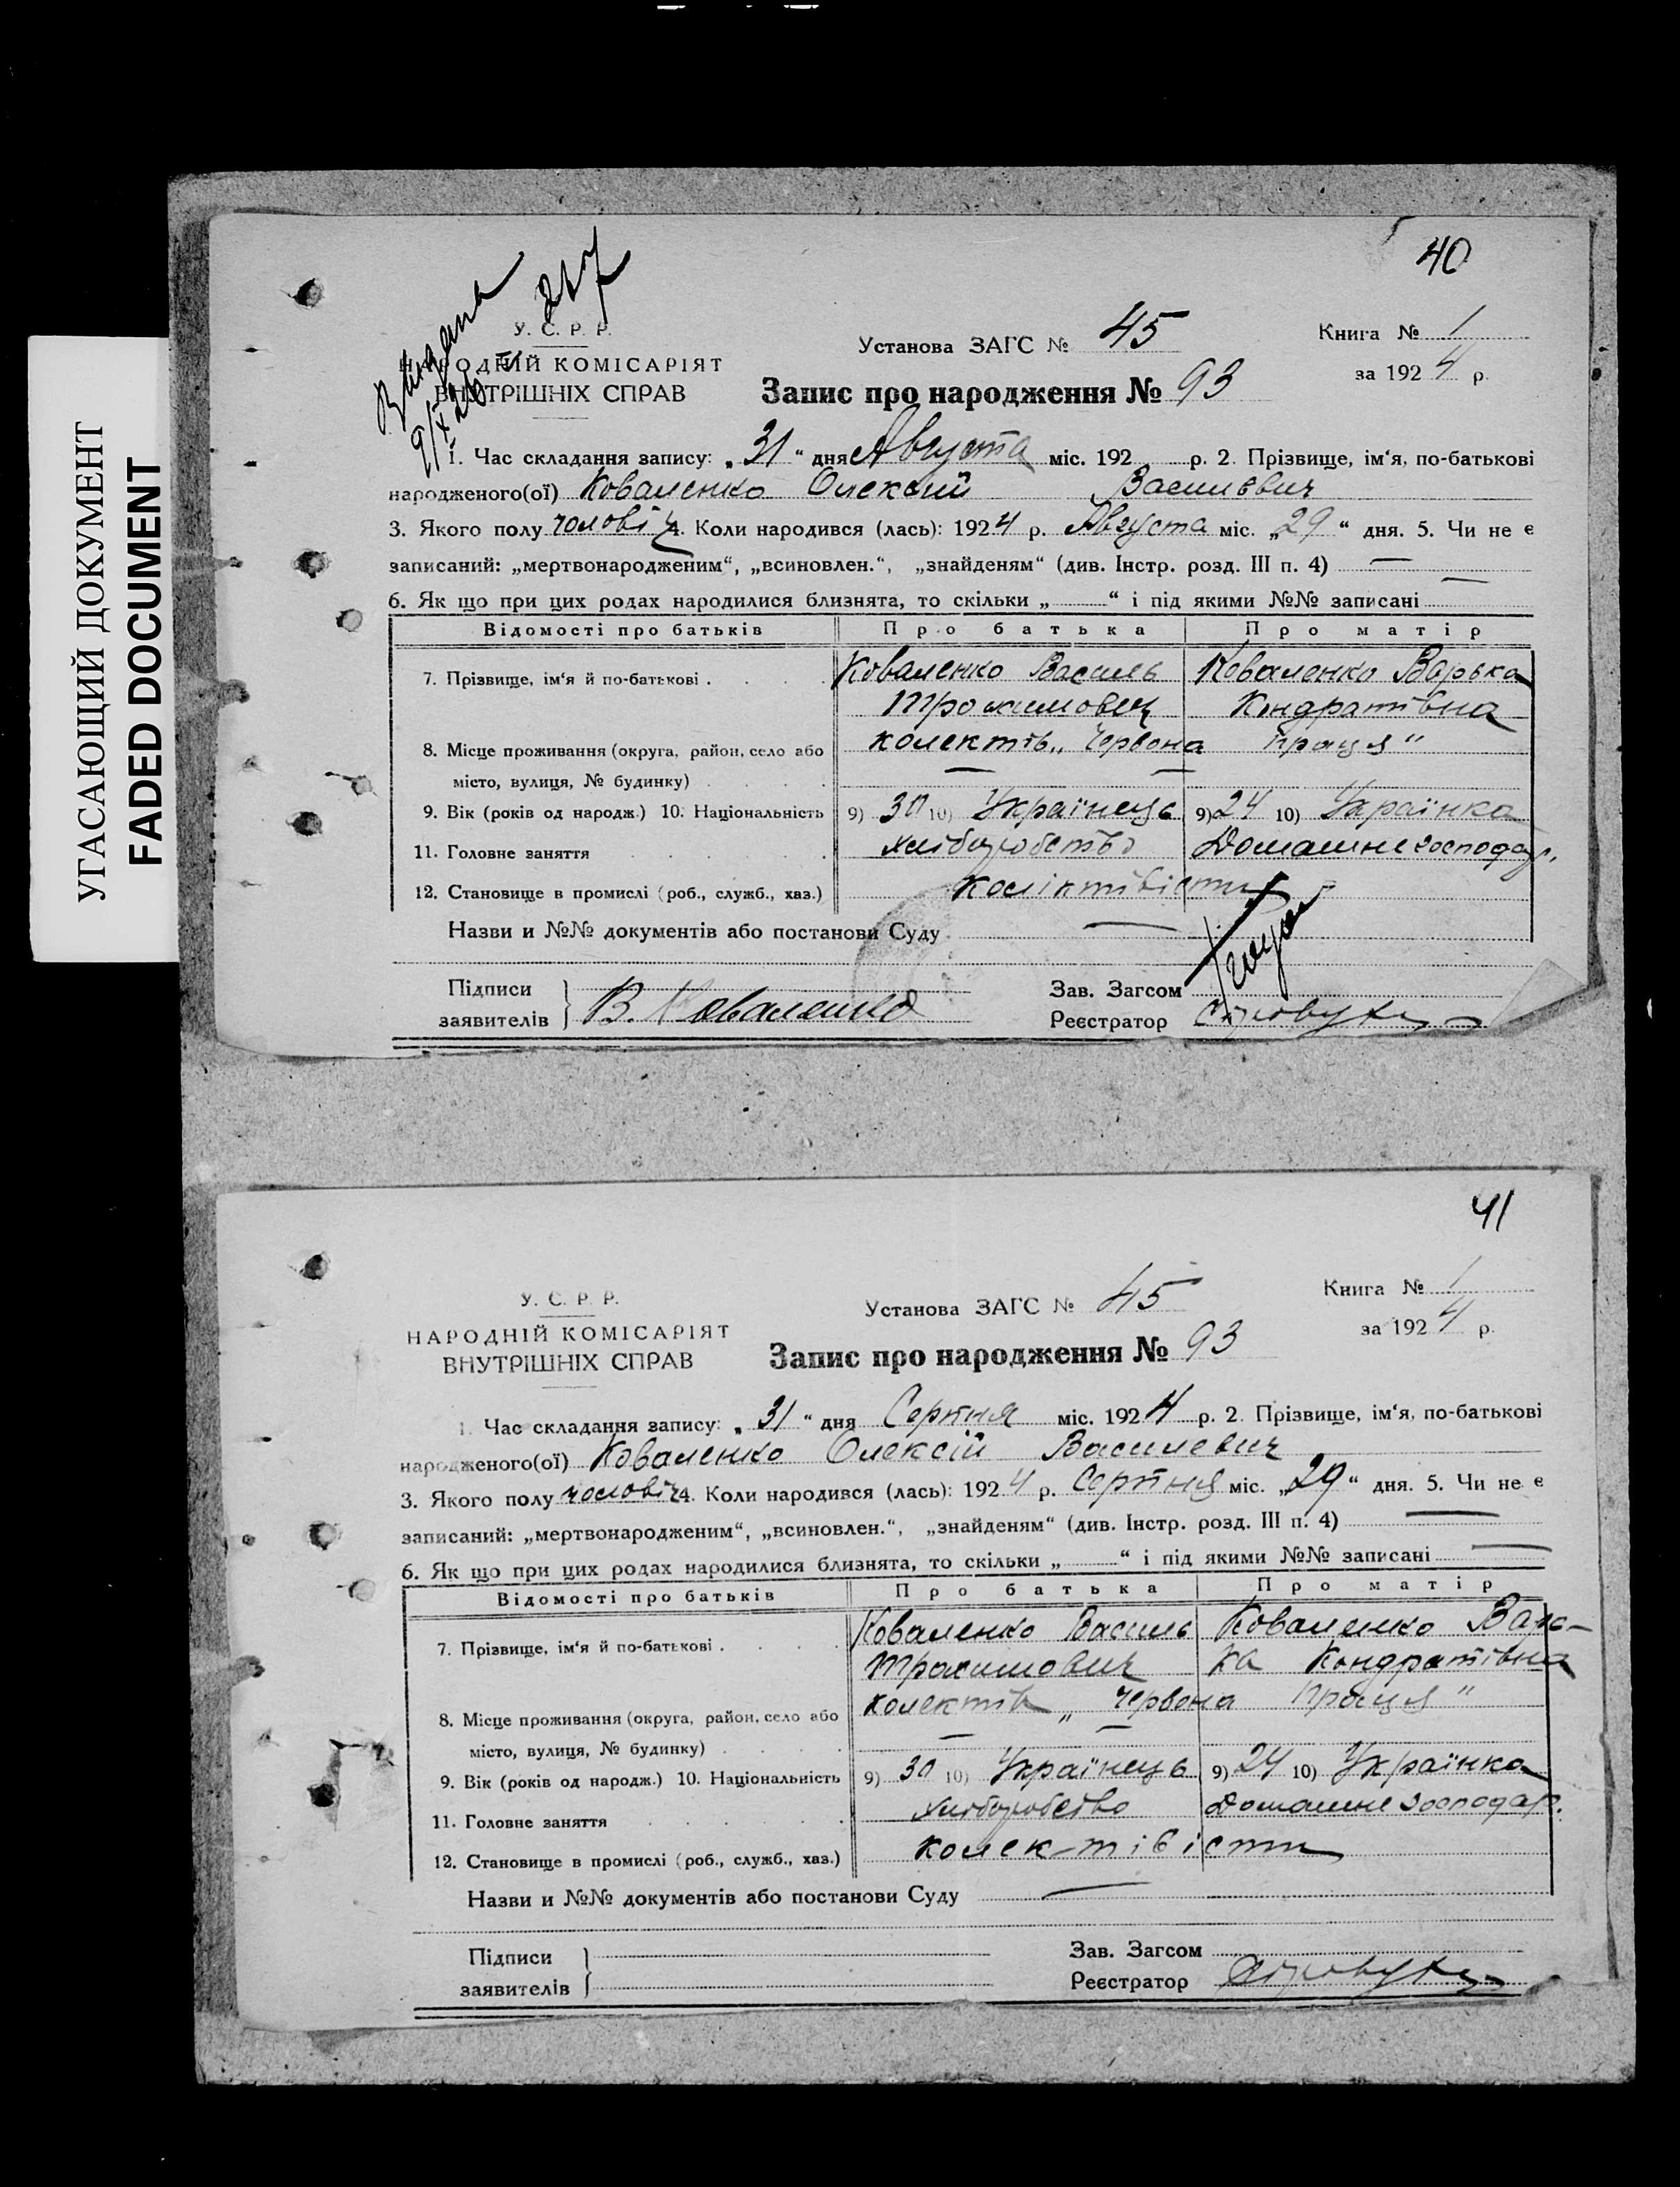 УГАСАЮЩИЙ ДОКУМЕНТ
FADED DOCUMENT
40
Видана
9/X 26
У. С. Р. Р.
НАРОДНІЙ КОМІСАРІЯТ
ВНУТРІШНІХ СПРАВ
Установа ЗАГС № 45
Запис про народження № 93
Книга № 1
за 1924 р.
1. Час складання запису: „31“ дня Августа міс. 192 р. 2. Прізвище, ім‘я, по-батькові
народженого(ої) Коваленко Олексій Василєвич
3. Якого полу чоловіч 4. Коли народився (лась): 1924 р. Августа міс. „29“ дня. 5. Чи не є
записаний: „мертвонародженим“, „всиновлен.“, „знайденям“ (див. Інстр. розд. III п. 4) —
6. Як що при цих родах народилися близнята, то скільки „ “ і під якими №№ записані —
Відомості про батьків Про батька Про матір
7. Прізвище, ім‘я й по-батькові . Коваленко Василь Коваленко Варька
Трохимович Кондратівна
8. Місце проживання (округа, район, село або колектів „Червона праця“
місто, вулиця, № будинку) — —
9. Вік (років од народж.) 10. Національність 9) 30 10) Українець 9) 24 10) Українка
11. Головне заняття хліборобство Домашне господар.
12. Становище в промислі (роб., служб., хаз.) коліктівісти
Назви и №№ документів або постанови Суду —
Підписи
заявителів В. Коваленко
Зав. Загсом
Реєстратор
41
У. С. Р. Р.
НАРОДНІЙ КОМІСАРІЯТ
ВНУТРІШНІХ СПРАВ
Установа ЗАГС № 45
Запис про народження № 93
Книга № 1
за 1924 р.
1. Час складання запису: „31“ дня Серпня міс. 1924 р. 2. Прізвище, ім‘я, по-батькові
народженого(ої) Коваленко Олексій Василевич
3. Якого полу чоловіч 4. Коли народився (лась): 1924 р. Серпня міс. „29“ дня. 5. Чи не є
записаний: „мертвонародженим“, „всиновлен.“, „знайденям“ (див. Інстр. розд. III п. 4) —
6. Як що при цих родах народилися близнята, то скільки „ “ і під якими №№ записані —
Відомості про батьків Про батька Про матір
7. Прізвище, ім‘я й по-батькові . Коваленко Василь Коваленко Варь-
Трохимович ка Кондратівна
8. Місце проживання (округа, район, село або колектів „Червона праця“
місто, вулиця, № будинку) — —
9. Вік (років од народж.) 10. Національність 9) 30 10) Українець 9) 24 10) Українка
11. Головне заняття хліборобство Домашне господар.
12. Становище в промислі (роб., служб., хаз.) колек-тівісти
Назви и №№ документів або постанови Суду —
Підписи
заявителів
Зав. Загсом
Реєстратор